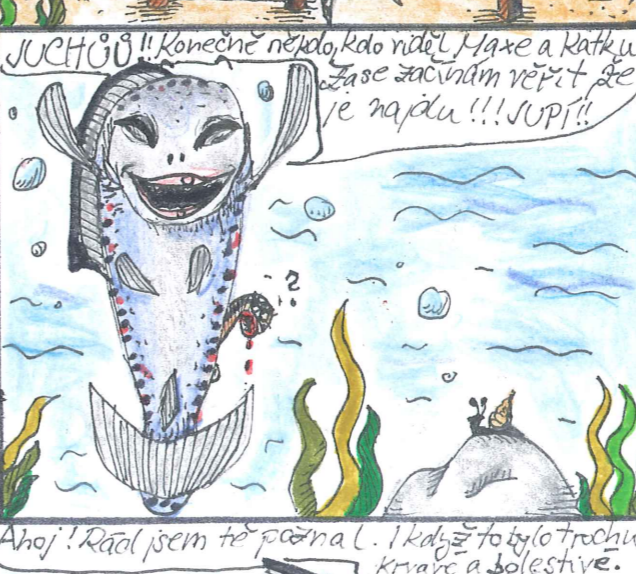 JUCHŮŮ!! Konečně někdo, kdo viděl Maxe a Katku
Zase začínám věřit že
je najdu!!! JUPÍ!!
?
Ahoj! Rád jsem tě poznal. I když to bylo trochu
krvavé a bolestivé.